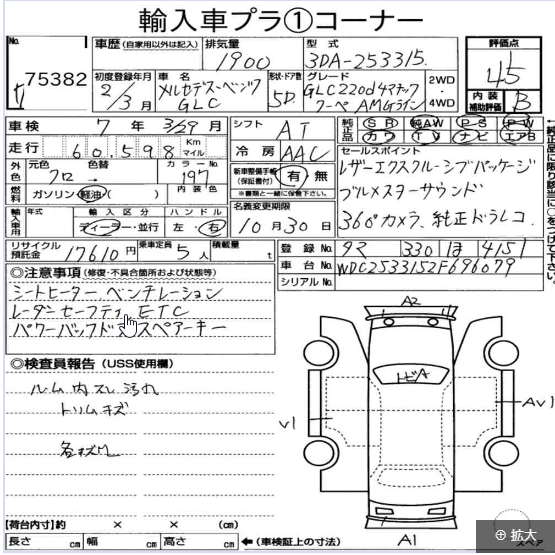 輸入車プラ①コーナー
No.
75382
車歴 (自家用以外は記入)
排気量
1900
型式
3DA-253315
評価点
4.5
初度登録年月
2/3月
車名
メルセデス・ベンツ
GLC
形状・ドア数
5D
グレード
GLC220d4マチック
クーペ AMGライン
2WD
4WD
内装
補助評価
B
車検
7年 3/29月
シフト
AT
純正品
SR 純AW P・S P・W
カワ TV ナビ エアB
走行
60,598 Km マイル
冷房
AAC
セールスポイント
レザーエクスクルーシブパッケージ
ブルメスターサウンド
360°カメラ、純正ドラレコ
外色
元色
クロ
色替
→
カラーNo.
197
新車整備手帳
(保証書付)
有・無
※書類と一緒に保管下さい。
燃料
ガソリン・軽油
内装色
名義変更期限
10月30日
輸入車用
年式
輸入区分
ディーラー・並行
ハンドル
左・右
リサイクル
預託金
17610円
乗車定員
5人
積載量
t
登録No.
タマ 330 ほ 4151
車台No.
WDC2533152F696079
シリアルNo.
◎注意事項 (修復・不具合箇所および状態等)
シートヒーター ベンチレーション
レーダーセーフティ ETC
パワーバックドア スペアーキー
◎検査員報告 (USS使用欄)
ルーム内スレ 汚れ
トリムキズ
A2
トビA
V1
AV1
A1
スペア
【荷台内寸】約 × × (cm)
長さ cm 幅 cm 高さ cm
←(車検証上の寸法)
拡大